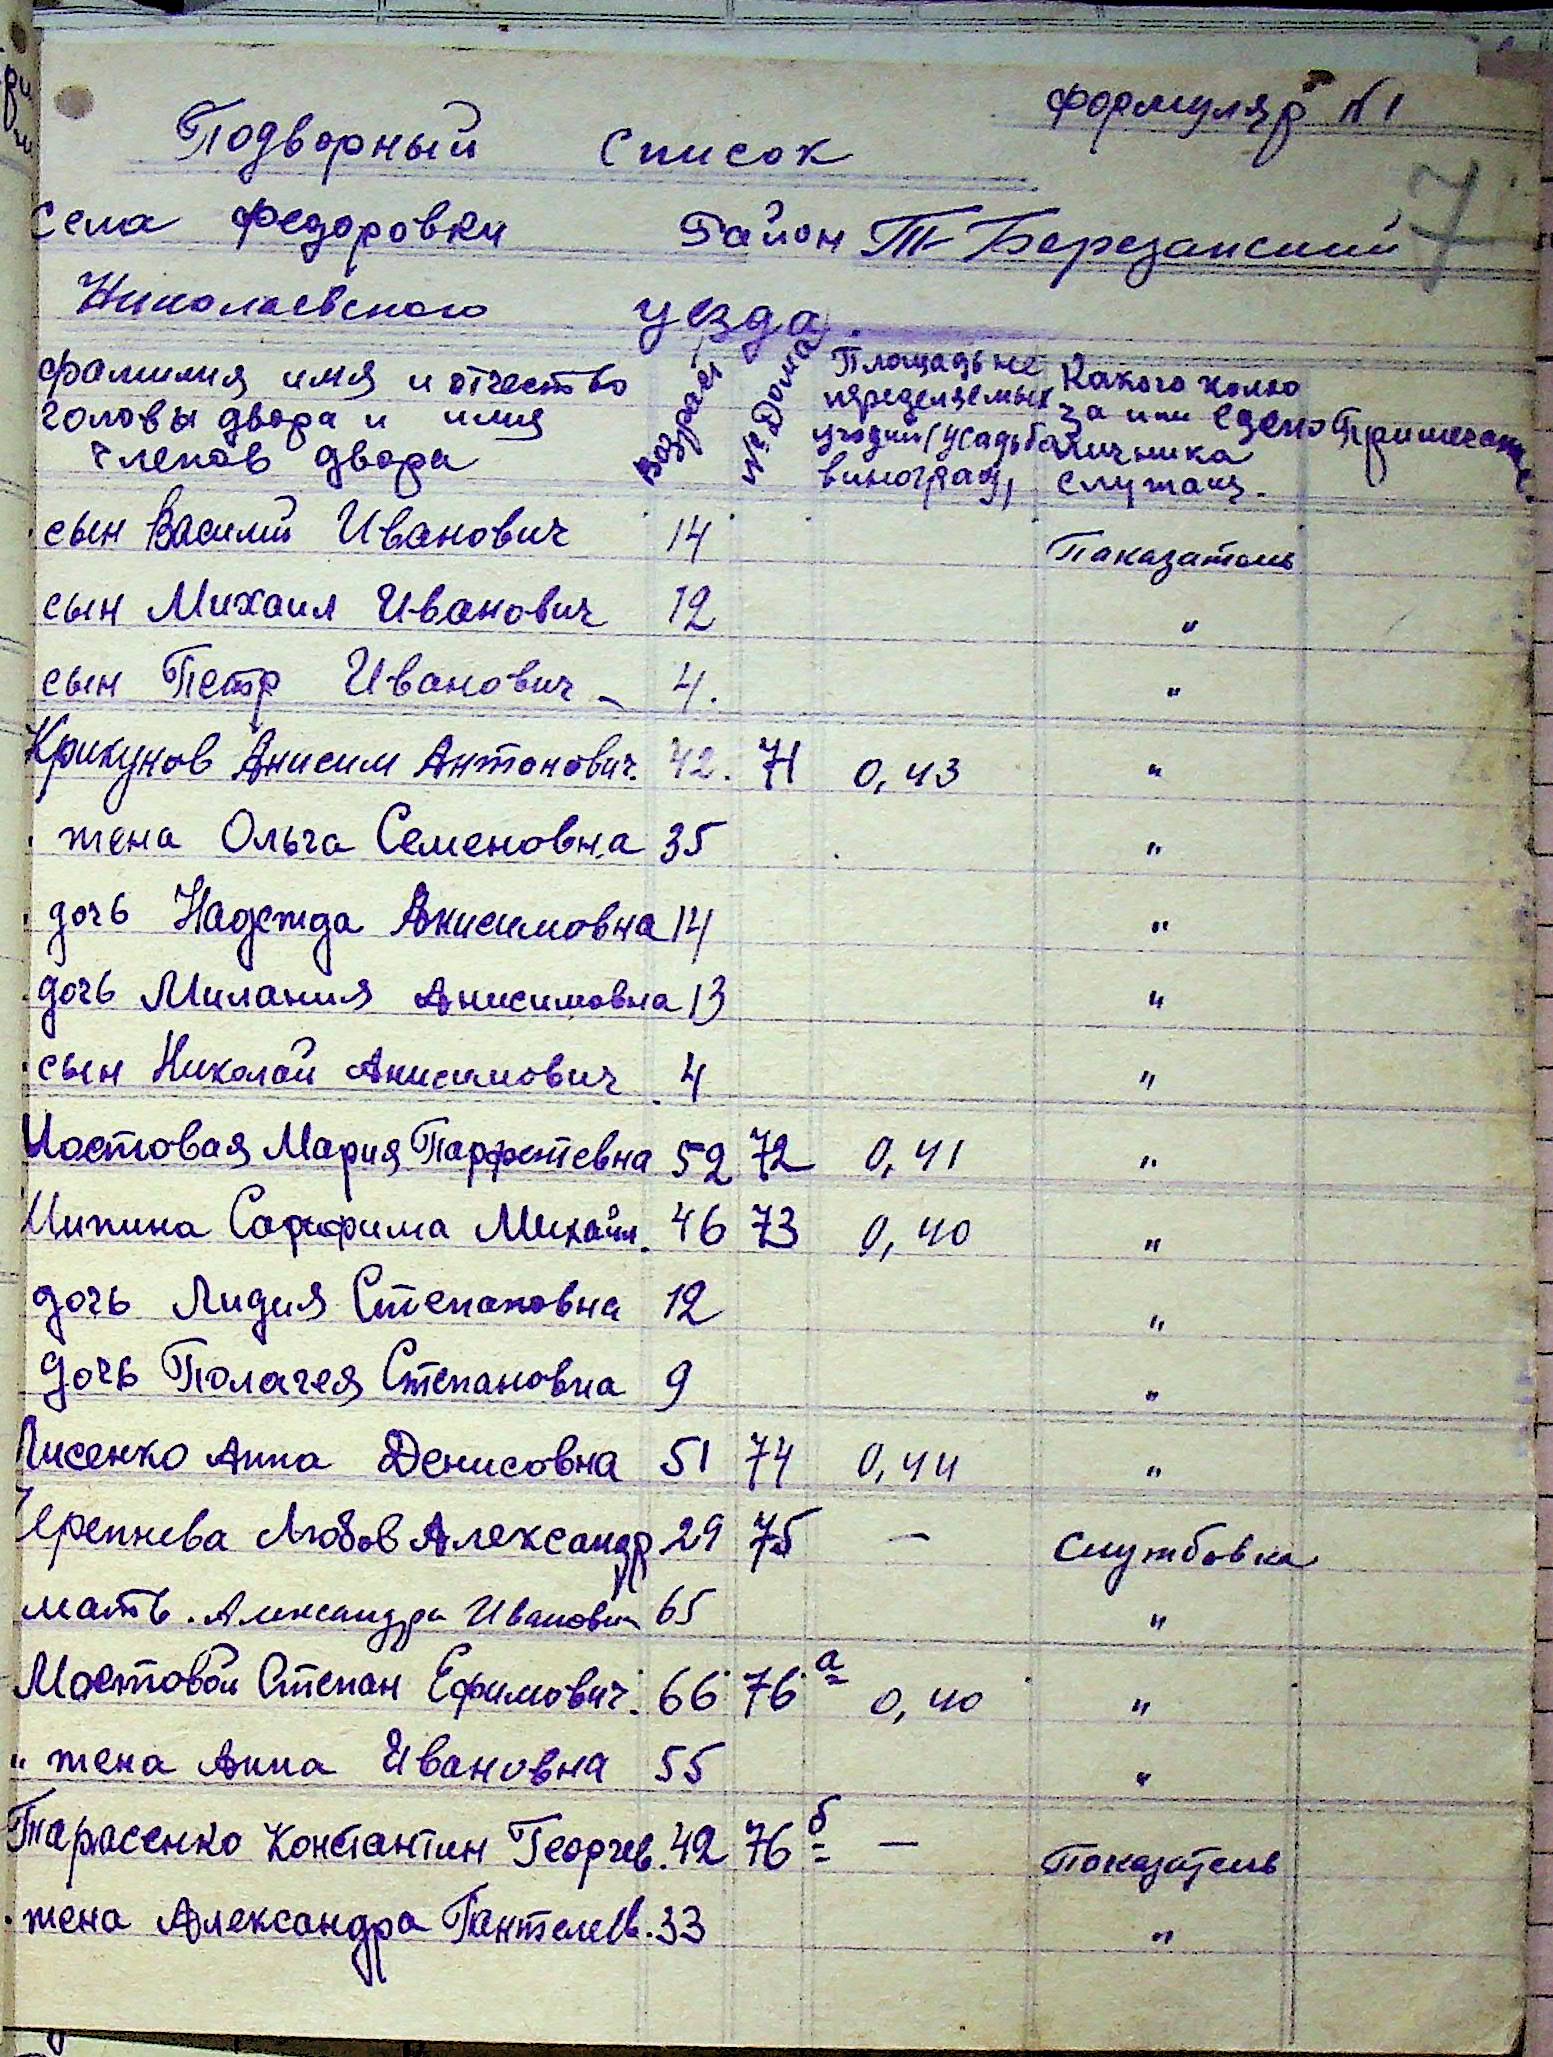 Формуляр №1
7
Подворный список
села Федоровки Район Т-Березанский
Николаевского уезда.
Фамилия имя и отчество головы двора и имя членов двора
Возраст
№ Дома
Площадь не переделяемых угодий (усадьба виноград,
Какого колхоза или едено личника служащ.
сын Василий Иванович 14 Паказатель
сын Михаил Иванович 12 "
сын Петр Иванович - 4. "
Крикунов Анисим Антонович. 42. 71 0,43 "
жена Ольга Семеновна 35 "
дочь Надежда Анисимовна 14 "
дочь Милания Анисимовна 13 "
сын Николай Анисимович 4 "
Мостовая Мария Парфетевна 52 72 0,41 "
Сарафима Михайл. 46 73 0,40 "
дочь Лидия Степановна 12 "
дочь Полагея Степановна 9 "
Лисенко Анна Денисовна 51 74 0,44 "
Черепнева Любов Александр 29 75 — Службовка
мать. Александра Ивановн 65 "
Мостовой Степан Ефимович. 66 76 а 0,40 "
" жена Анна Ивановна 55 "
Тарасенко Константин Георгев. 42 76 б — Показатель
жена Александра Пантелев. 33 "